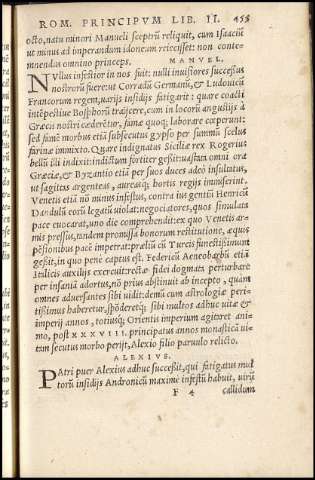 ROM. PRINCIPVM LIB. II. 455
octo, natu minori Manueli sceptrũ reliquit, cum Isaaciũ
ut minus ad imperandum idoneam reiecisset: non conte-
mnendus omnino princeps.
MANVEL.
NVllus infestior in nos fuit: nulli inuisiores successus
nostrorũ fuerẽt ut Corradũ Germanũ, & Ludouicũ
Francorum regem, uarijs insidijs fatigarit: quare coacti
intẽpestiue Bosphorũ traijcere, cum in locorũ angustijs à
Græcis nostri cæderẽtur, fame quoq; laborare cœperunt:
sed fame morbus etiã subsecutus gypso per summũ scelus
farinæ immixto. Quare indignatus Siciliæ rex Rogerius
bellũ illi indixit: indictum fortiter gessit: uastata omni ora
Græciæ, & Byzantio etiã per suos duces adeò insultatus,
ut sagittas argenteas, aureasq; hortis regijs immiserint.
Venetis etiã nõ minus infestus, contra ius gentiũ Henricũ
Dandulũ eorũ legatũ uiolat: negociatores, quos simulata
pace euocarat, uno die comprehendit: ex quo Venetis ar-
mis pressus, tandem promissa bonorum restitutione, æquis
pẽsionibus pacẽ impetrat: præliũ cũ Turcis funestissimum
gessit, in quo penè captus est. Federicũ Aeneobarbũ etiã
Italicis auxilijs exercuit: rectæ fidei dogmata perturbare
per insaniã adortus, nõ prius abstinuit ab incepto, quàm
omnes aduersantes sibi uidit: demũ cum astrologiæ peri-
tissimus haberetur, spõderetq; sibi multos adhuc uitæ &
imperij annos, totiusq; Orientis imperium agitaret ani-
mo, post XXXVIII. principatus annos monasticã ui-
tam secutus morbo perijt, Alexio filio paruulo relicto.
ALEXIVS.
PAtri puer Alexius adhuc successit, qui fatigatus mul
torũ insidijs Andronicũ maximè infestũ habuit, uirũ
F 4 callidum